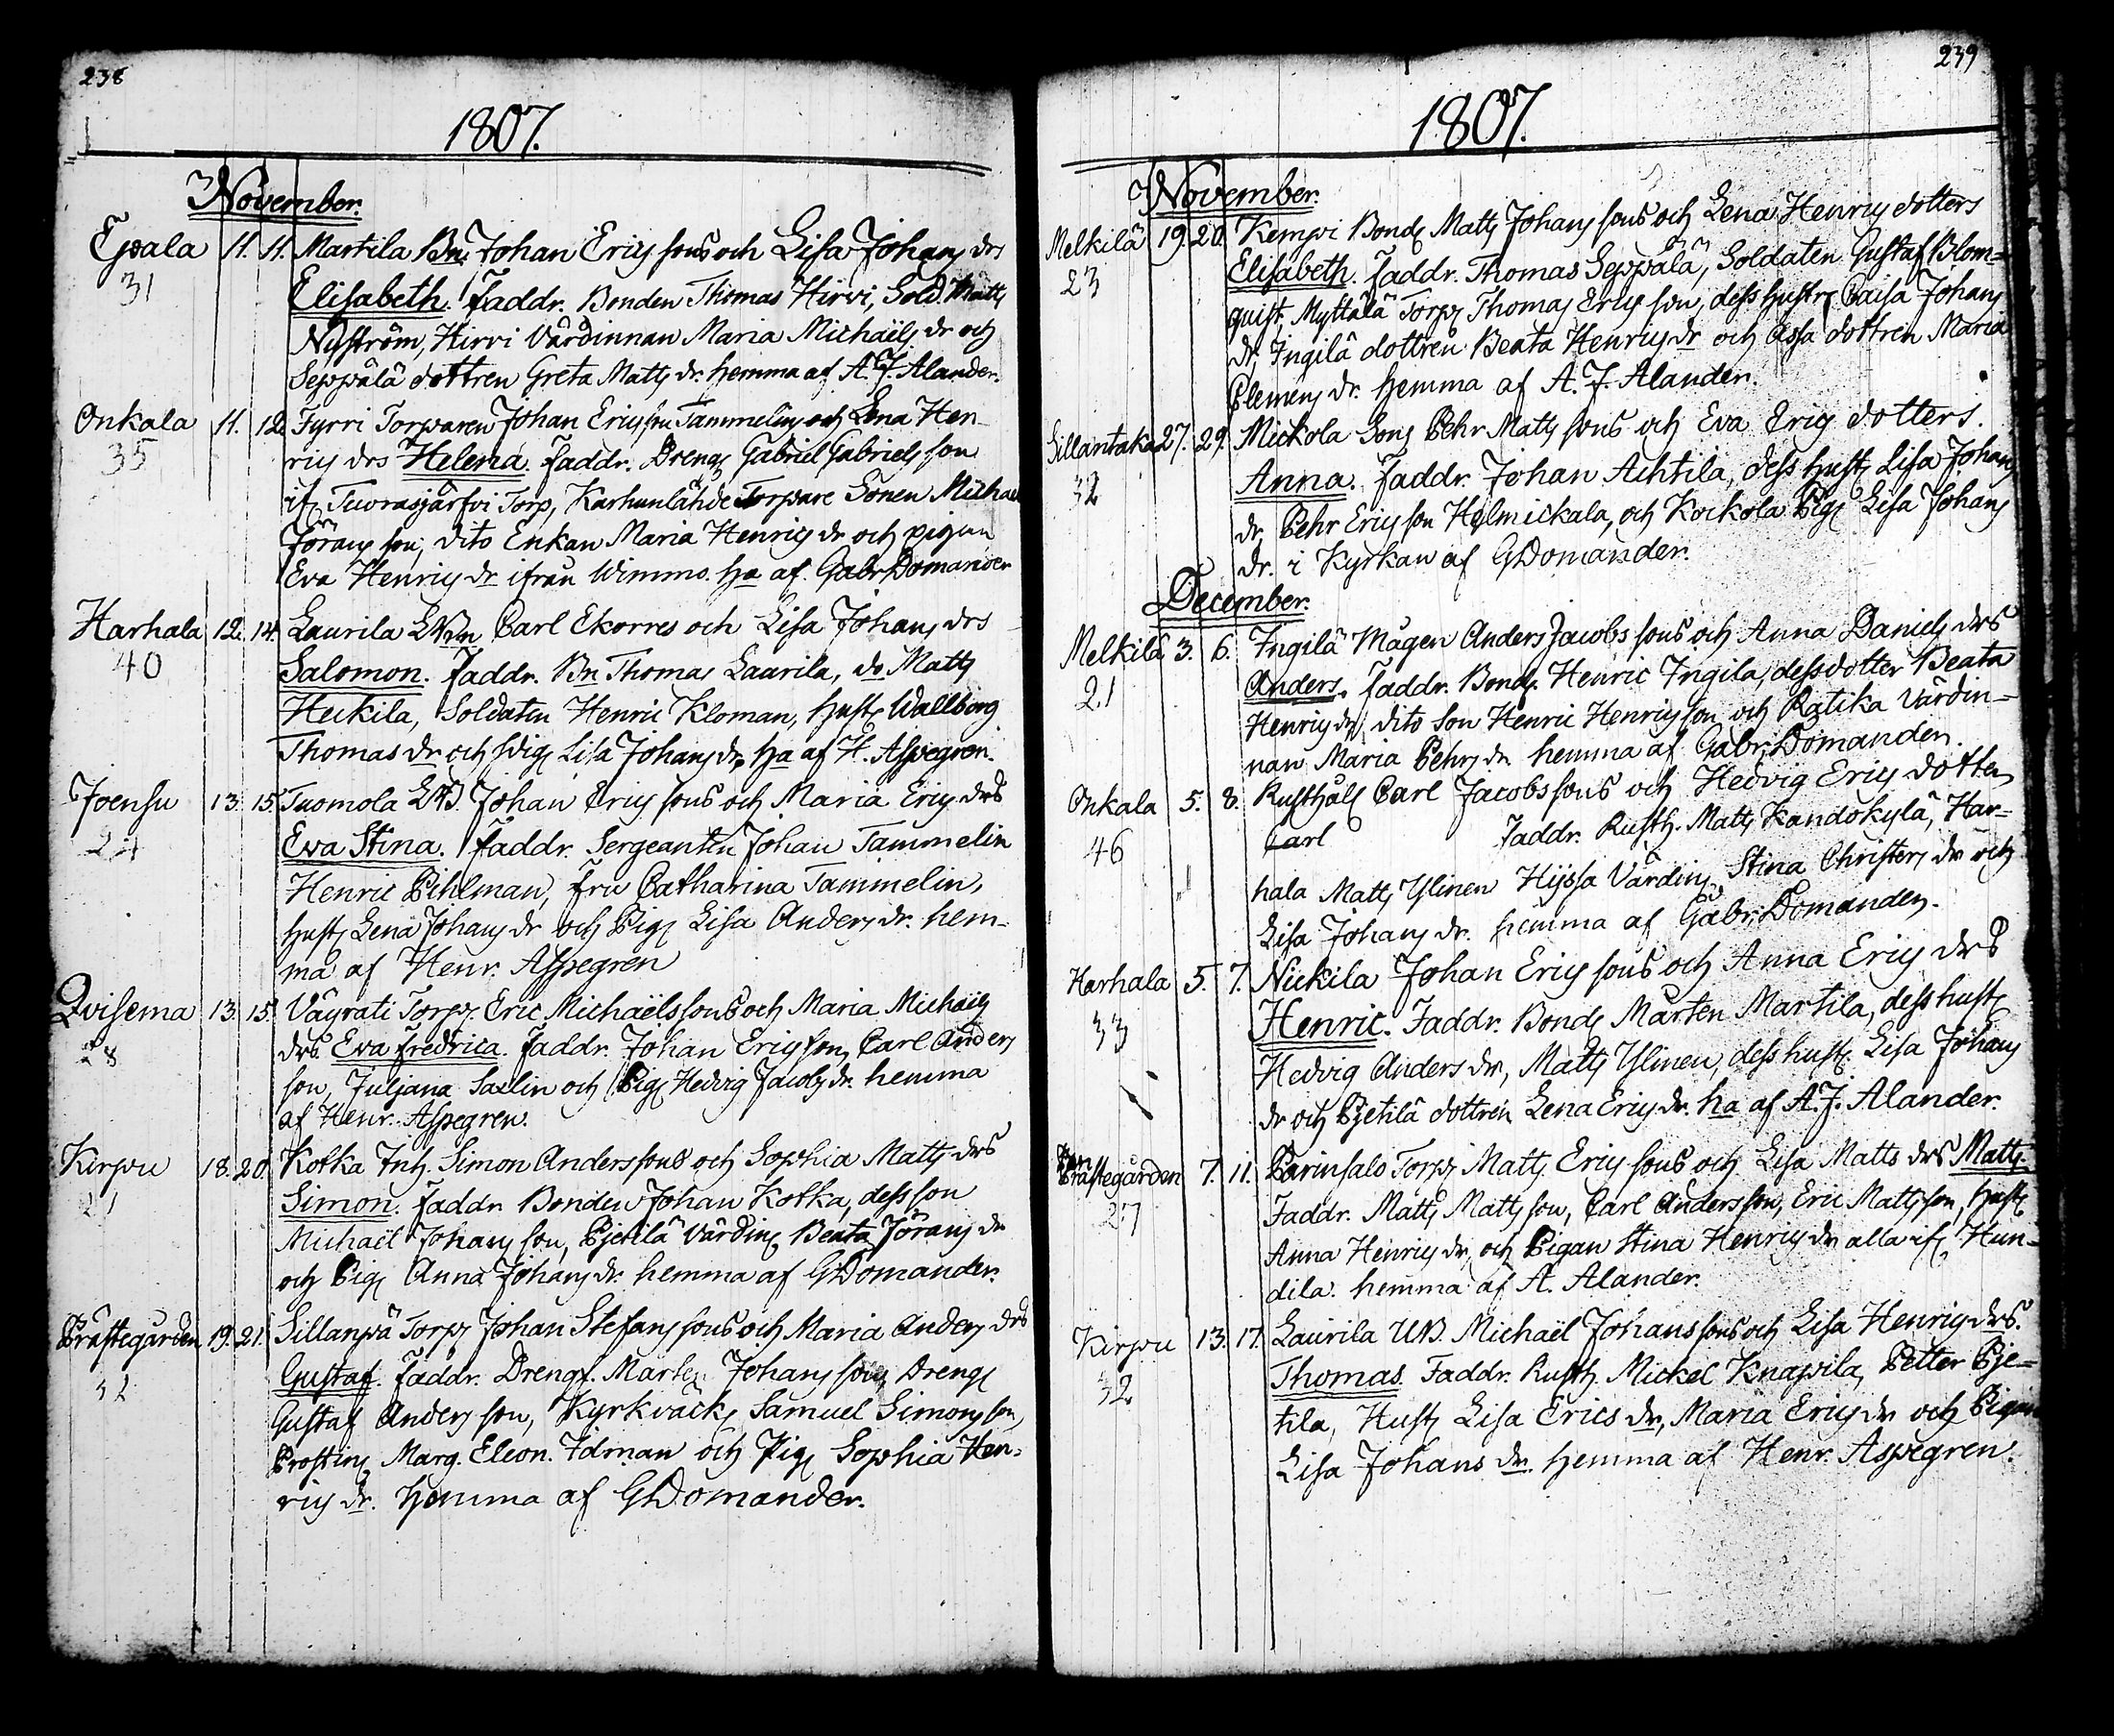 238
1807.
November.
Epala 11. 11. Martila Bn. Johan Erics sons och Lisa Johans drs
31 Elisabeth. Faddr. Bonden Thomas Hirvi, Sold. Matts
Nyström, Hirvi Värdinnan Maria Michaëls dr och
Seppälä dottren Greta Matts dr. hemma af A. J. Alander.
Onkala 11. 12. Fyrri Torparen Johan Ericssons Tammelins och Lena Hen-
35 rics drs Helena. Faddr. Dreng Gabriel Gabriels son
if. Tuorasjärfvi Torp, Karhunlähde Torpare Sonen Michael
Jörans son, dito Enkan Maria Henrics dr och pigan
Eva Henrics dr ifrån Wimmo. ha af Gabr. Domander
Harhala 12. 14. Laurila Carl Ekorres och Lisa Johans drs
40 Salomon. Faddr. Bn Thomas Laurila, do Matts
Heikila, Soldaten Henric Kloman, Hust. Wallborg
Thomas dr och pig. Lisa Johans dr, ha af H. Aspegren.
Joensu 13. 15. Tuomola Johan Erics sons och Maria Erics drs
24 Eva Stina. Faddr. Sergeanten Johan Tammelin
Henric Pihlman, fru Catharina Tammelin,
Hust. Lena Johans dr och Pig. Lisa Anders dr. hem-
ma af Henr. Aspegren
Qvisema 13. 15. Väyrati Torp. Eric Michaëls sons och Maria Michaëls
28 drs. Eva Fredrica. Faddr. Johan Ericsson, Carl Anders
son, Juljana Saxlin och Pig. Hedvig Jacobs dr. hemma
af Henr. Aspegren.
Kirpu 18. 20. Kotka Inh. Simon Anders sons och Sophia Matts drs
21 Simon. Faddr. Bonden Johan Kotka, dess son
Michaël Johans son, Pjetilä Värdin. Beata Jörans dr
och Pig. Anna Johans dr. hemma af GDomander.
Prästegården 19. 21. Sillanpä Torp. Johan Stefans sons och Maria Anders drs
32 Gustaf. Faddr. Dreng. Marten Johans son, Dreng.
Gustaf Anders son, Kyrkväck. Samuel Simons son,
Prostin. Marg. Eleon. Idman och Pig. Sophia Hen-
rics dr. hemma af GDomander.
239
1807.
November.
Melkilä 19. 20. Kempi Bond. Matts Johans sons och Lena Henrics dotters
23 Elisabeth. Faddr. Thomas Seppälä, Soldaten Gustaf Blom-
quist, Myttälä Torp. Thomas Erics son, dess hustr. Caisa Johans
dr, Ingilä dottren Beata Henrics dr och Assa dottren Maria
Clemens dr. hemma af A. J. Alander.
Sillantaka 27. 29. Mickola Sons Pehr Matts sons och Eva Erics dotters.
32 Anna. Faddr. Johan Achtila, dess hust. Lisa Johans
dr, Pehr Erics son Helmickala, och Kockola Pig. Lisa Johans
dr. i Kyrkan af GDomander.
December.
Melkilä 3. 6. Ingilä Mågen Anders Jacobs sons och Anna Daniels drs
21 Anders. Faddr. Bond. Henric Ingila, dess dotter Beata
Henrics dr, dito Son Henric Henrics son och Ratika Värdin-
nan Maria Pehrs dr hemma af Gabr. Domander.
Onkala 5. 8. Rusthåll. Carl Jacobs sons och Hedvig Erics dotters
46 Carl Faddr. Rusth. Matts Kandokylä, Har-
hala Matts Ylinen Hyssa Värdin. Stina Christers dr och
Lisa Johans dr. hemma af Gabr. Domander.
Harhala 5. 7. Nickila Johan Erics sons och Anna Erics drs
33 Henric. Faddr. Bond. Mårten Martila, dess hust.
Hedvig Anders dr, Matts Ylinen, dess hust. Lisa Johans
dr och Pjetilä dottren Lena Erics dr. ha af A. J. Alander.
Prästegården 7. 11. Parinsalo Torp. Matts Erics sons och Lisa Matts drs Matts
27 Faddr. Matts Matts son, Carl Andersson, Eric Mattsson, Hust.
Anna Henrics dr, och Pigan Stina Henrics dr alla if. Hun-
dila. hemma af A. Alander.
Kirpu 13. 17. Laurila UB. Michaël Johans sons och Lisa Henrics drs.
32 Thomas. Faddr. Rusth. Mickel Knapila, Petter Pje-
tila, Hust. Lisa Erics dr, Maria Erics dr och Pigan
Lisa Johans dr. hemma af Henr. Aspegren.